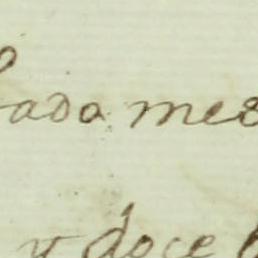 Cada mes
y doce